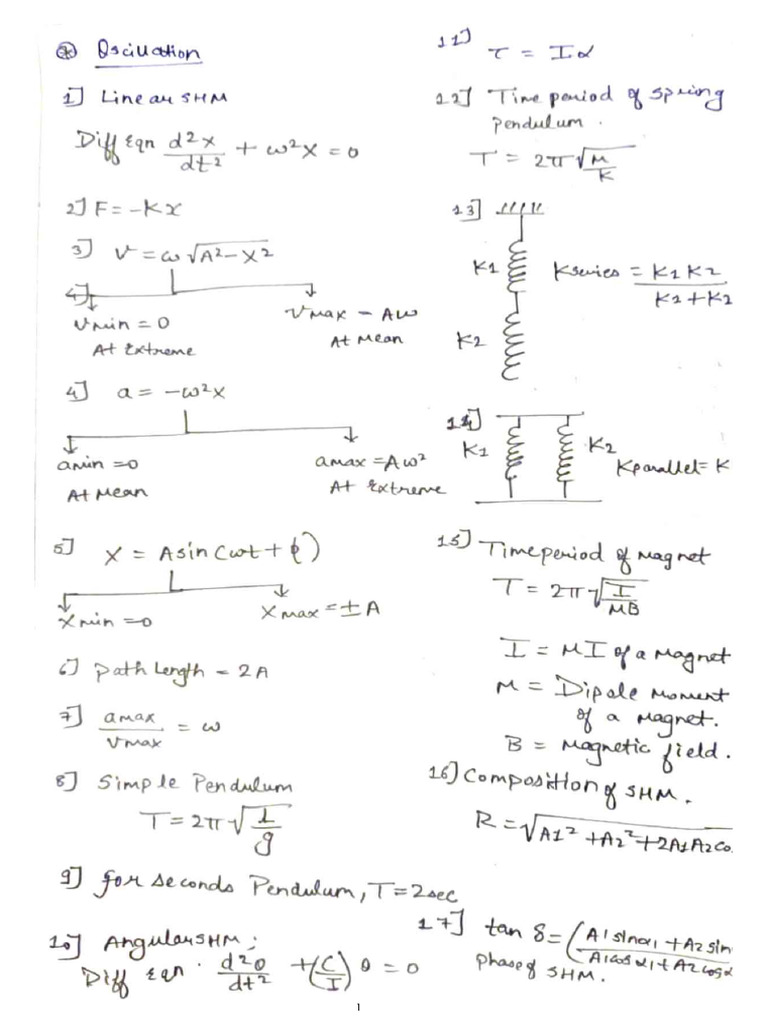 ⊛ Oscillation
1] Linear SHM
Diff Eqn d²x/dt² + ω²x = 0
2] F = -Kx
3] v = ω √A² - x²
4]
Vmin = 0
At Extreme
Vmax = Aω
At Mean
4] a = -ω²x
amin = 0
At Mean
amax = Aω²
At Extreme
5] x = A sin (ωt + ϕ)
xmin = 0
xmax = ± A
6] path Length = 2A
7] amax/vmax = ω
8] Simple Pendulum
T = 2π √l/g
9] for seconds Pendulum, T = 2sec
10] Angular SHM;
Diff Eqn. d²θ/dt² + (C/I) θ = 0
11] τ = Iα
12] Time period of spring
Pendulum.
T = 2π √M/K
13]
K1
K2
Kseries = K1 K2/K1 + K2
14]
K1
K2
Kparallel = K
15] Time period of Magnet
T = 2π √I/MB
I = MI of a Magnet
M = Dipole Moment
of a Magnet.
B = Magnetic field.
16] Composition of SHM.
R = √A1² + A2² + 2A1A2co
17] tan δ = (A1 sinα1 + A2 sin/A1cosα1 + A2 cosα
phase of SHM.
1